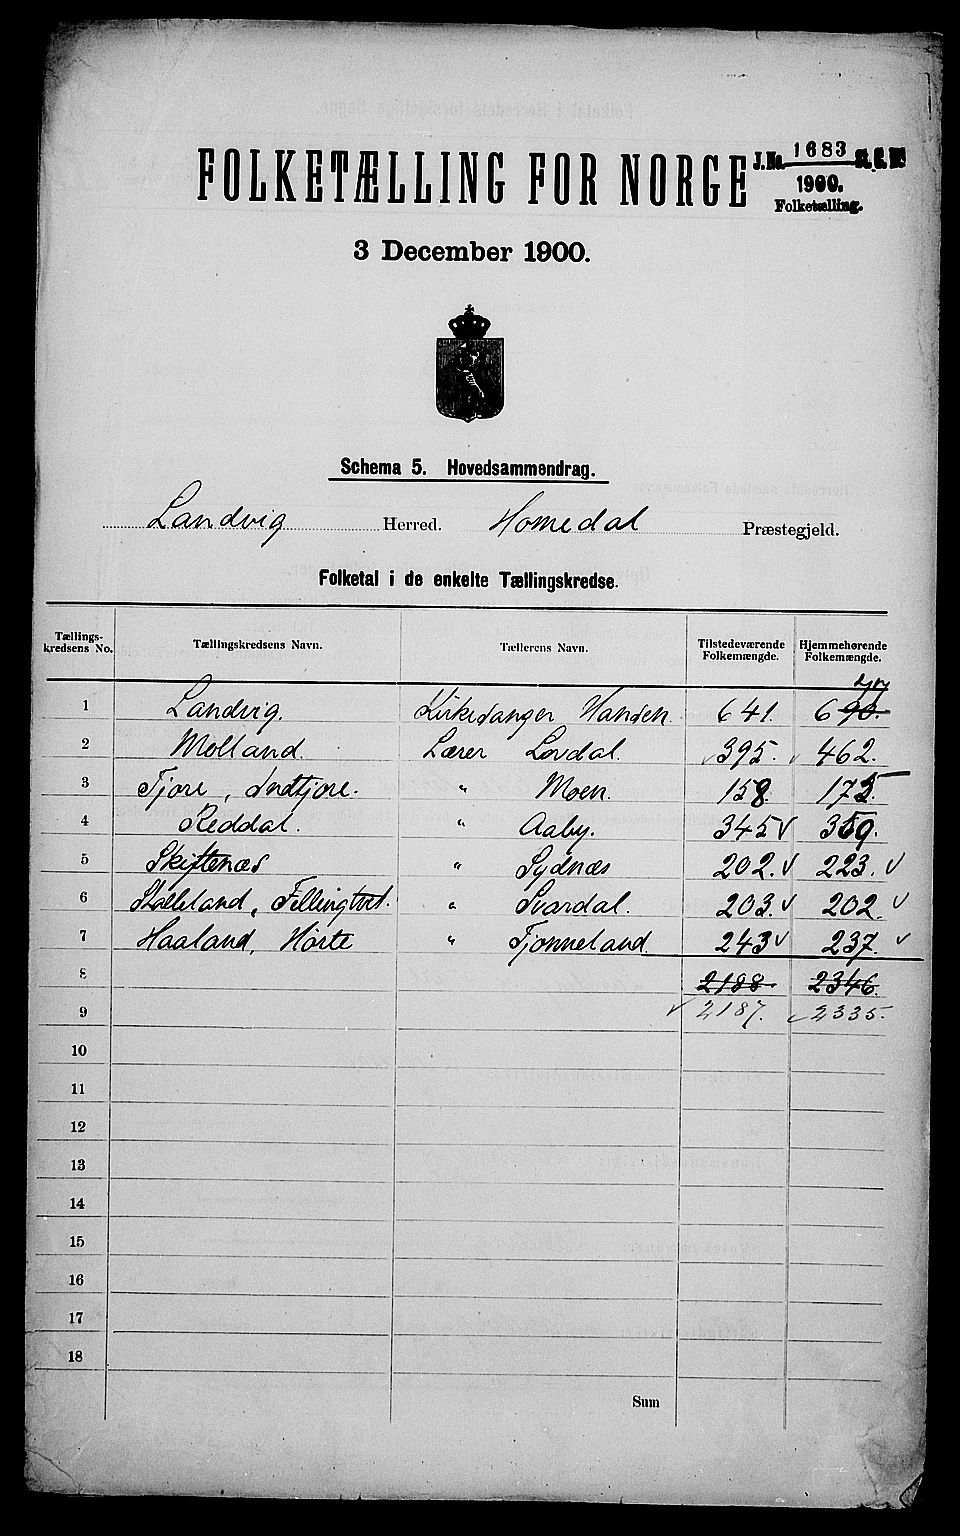 J.No. 1683 St. C. B.
1900.
Folketælling.
FOLKETÆLLING FOR NORGE
3 December 1900.
Schema 5. Hovedsammendrag.
Landvig Herred. Homedal Præstegjeld.
Folketal i de enkelte Tællingskredse.
Tællings-kredsens No. Tællingskredsens Navn. Tællerens Navn. Tilstedeværende Folkemængde. Hjemmehørende Folkemængde.
1 Landvig. Kirkesanger Hansen 641. 690.
2 Molland. Lærer Lovdal. 395. 462.
3 Fjore, Indfjore. " Moen. 158. 175.
4 Reddal. " Aaby. 345 359.
5 Skiftenæs " Sydnæs 202. 223.
6 Stalleland, Fellingtvet. " Svardal. 203. 202.
7 Haaland, Hørte " Tjønneland. 243 237.
8 2188. 2346.
9 2187. 2335.
10
11
12
13
14
15
16
17
18
Sum